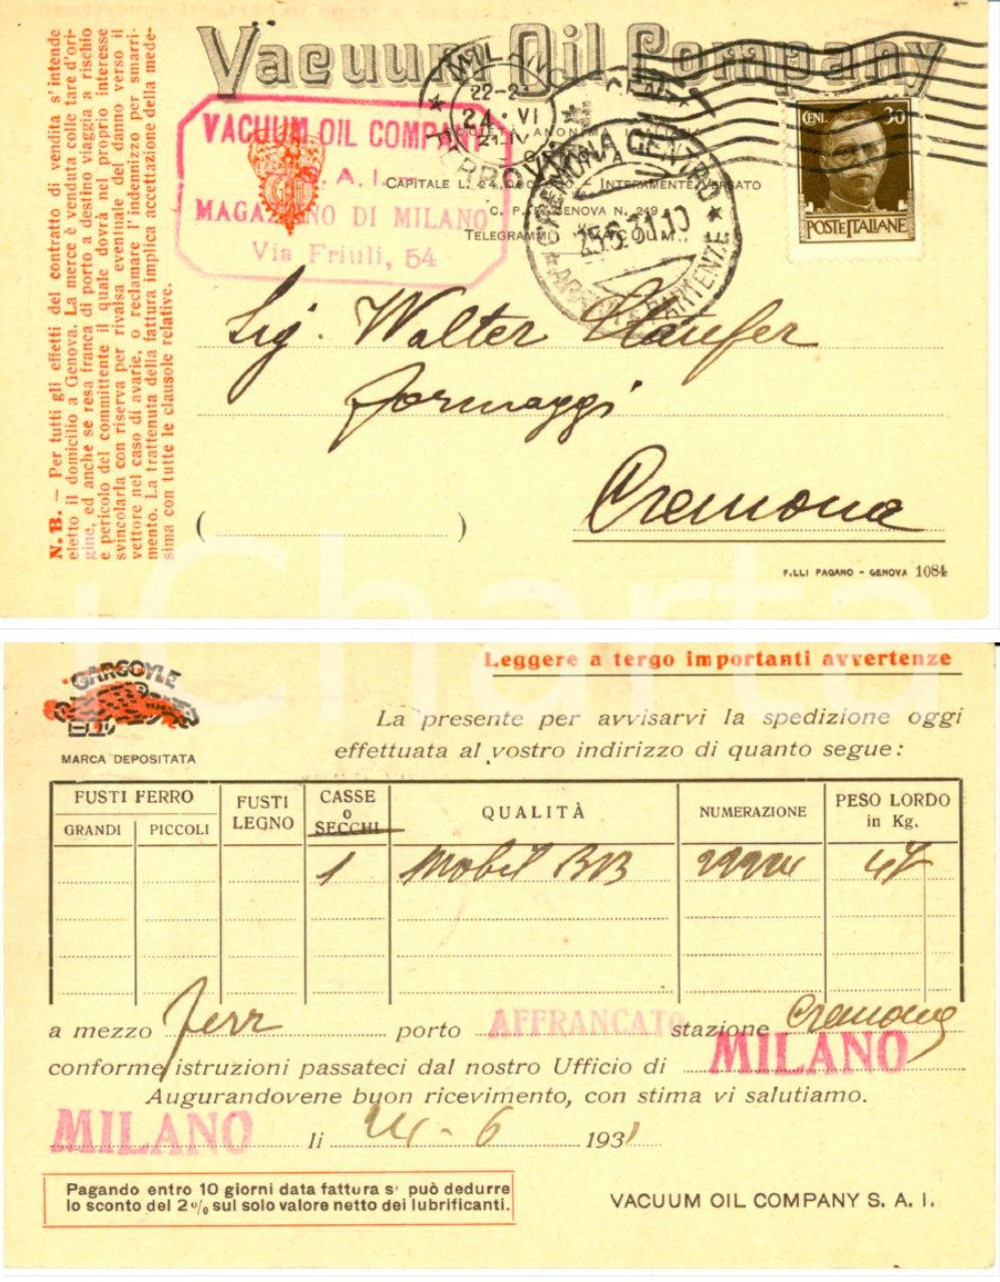 Vacuum Oil Company
MILANO
22-2
24 · VI
FERROVIA
CREMONA CENTRO
25.6.31.10
PARTENZE
CENT. 30
POSTE ITALIANE
VACUUM OIL COMPANY
S. A. I.
MAGAZZINO DI MILANO
Via Friuli, 54
SOCIETÀ ANONIMA ITALIANA
GENOVA
CAPITALE L. 24. INTERAMENTE VERSATO
C. P. E. GENOVA N. 219
TELEGRAMMI
Sig. Walter Staufer
formaggi
Cremona
( )
F.LLI PAGANO - GENOVA 1084
N. B. — Per tutti gli effetti del contratto di vendita s'intende
eletto il domicilio a Genova. La merce è venduta colle tare d'ori-
gine, ed anche se resa franca di porto a destino viaggia a rischio
e pericolo del committente il quale dovrà nel proprio interesse
svincolarla con riserva per rivalsa eventuale del danno verso il
vettore nel caso di avarie, o reclamare l'indennizzo per smarri-
mento. La trattenuta della fattura implica accettazione della mede-
sima con tutte le clausole relative.
iCharta
GARGOYLE
MARCA DEPOSITATA
Leggere a tergo importanti avvertenze
La presente per avvisarvi la spedizione oggi
effettuata al vostro indirizzo di quanto segue:
FUSTI FERRO
GRANDI PICCOLI
FUSTI LEGNO
CASSE o SECCHI
QUALITÀ
NUMERAZIONE
PESO LORDO in Kg.
1 Mobil BB 47
a mezzo ferr porto AFFRANCATO stazione Cremona
conforme istruzioni passateci dal nostro Ufficio di MILANO
Augurandovene buon ricevimento, con stima vi salutiamo.
MILANO li 24 - 6 1931
Pagando entro 10 giorni data fattura s' può dedurre
lo sconto del 2% sul solo valore netto dei lubrificanti.
VACUUM OIL COMPANY S. A. I.